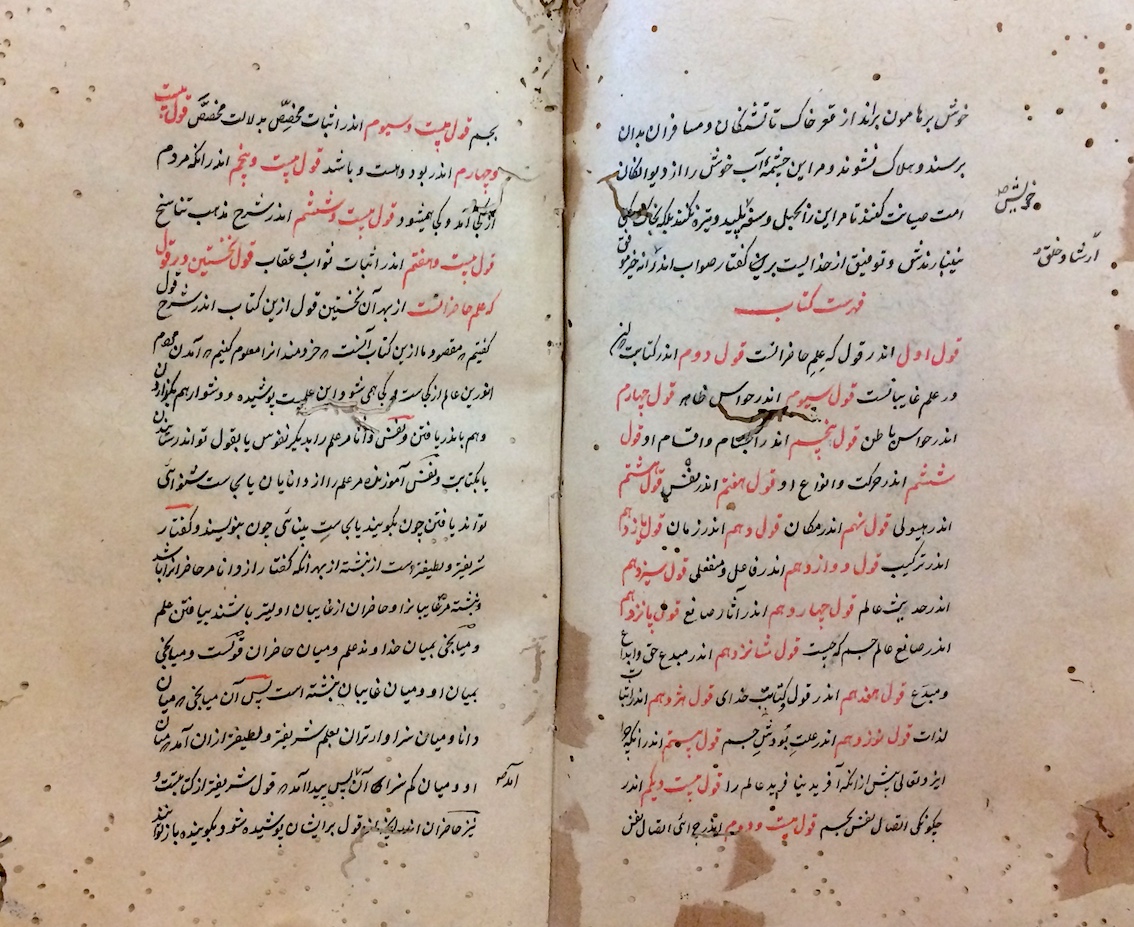 خوش بر هامون براند از قعر خاک تا تشنکان و مسافران بدان
برسند و هلاک نشوند و مر این چشمهٔ آب خوش را از دیوانکان
امت صیانت کنند تا مر این را بجهل و سفه پلید و تیره نکنند بلکه بخاک و
نینبارندش و توفیق از خدایست بر گفتار صواب اندر
خویش
ارشاد خلق
فهرست کتاب
قول اول اندر قول که علم حاضرانست قول دوم اندر کتابت
و علم غایبانست قول سیوم اندر حواس ظاهر قول چهارم
اندر حواس باطن قول پنجم اندر اجسام و اقسام او قول
ششم اندر حرکت و انواع او قول هفتم اندر نفس قول هشتم
اندر هیولی قول نهم اندر مکان قول دهم اندر زمان قول یازدهم
اندر ترکیب قول دوازدهم اندر فاعل و منفعل قول سیزدهم
اندر حدیث عالم قول چهاردهم اندر آثار صانع قول پانزدهم
اندر صانع عالم جسم که چیست قول شانزدهم اندر مبدع حق و ابداع
و مبدَع قول هفدهم اندر قول و کتابت خدای قول هژدهم اندر اثبات
لذات قول نوزدهم اندر علت بودش جسم قول بیستم اندر آنکه چرا
ایزد تعالی پیش از آنکه آفرید نیافرید عالم را قول بیست و یکم اندر
چکونکی اتصال نفس بجسم قول بیست و دوم اندر جدائی اتصال نفس
بجسم قول بیست و سیوم اندر اثبات مخصِّص بدلالت مخصَّص قول بیست
و چهارم اندر بود و هست و باشد قول بیست و پنجم اندر انکه مردم
از کجا آمد و کجا همیشود قول بیست و ششم اندر شرح مذهب تناسخ
قول بیست و هفتم اندر اثبات ثواب و عقاب قول نخستین در قول
که علم حاضرانست از بهر آن نخستین قول ازین کتاب اندر شرح قول
کفتیم که مقصود ما ازین کتاب آنست که خردمند را معلوم کنیم که آمدن مردم
اندرین عالم از کجاست و کجا همی شود و این علمیست پوشیده و دشوار هم بکزاردن
و هم باندر یافتن و نفس دانا مر علم را بدیکر نفوس یا بقول تواند رسانیدن
یا بکتابت و نفس آموزنده مر علم را از دانایان یا بحاست شنوائی
تواند یافتن چون بکویند یا بحاست بینائی چون بنویسند و کفتار
شریفتر و لطیفتر است از نبشته از بهر انکه کفتار از دانا مر حاضرانرا باشد
و نبشته مر غایبانرا و حاضران از غایبان اولیتر باشند بیافتن علم
و میانجی بمیان خداوند علم و میان حاضران قولست و میانجی
بمیان او و میان غایبان نبشته است پس آن میانجی که میان
دانا و میان سزاوارتران بعلم شریفتر و لطیفتر از ان آمد که میان
او و میان کم سزایان آمد پس پیدا آمد که قول شریفتر از کتابتست و
نیز حاضران اندر قول برایشان پوشیده شود بکوینده باز توانند